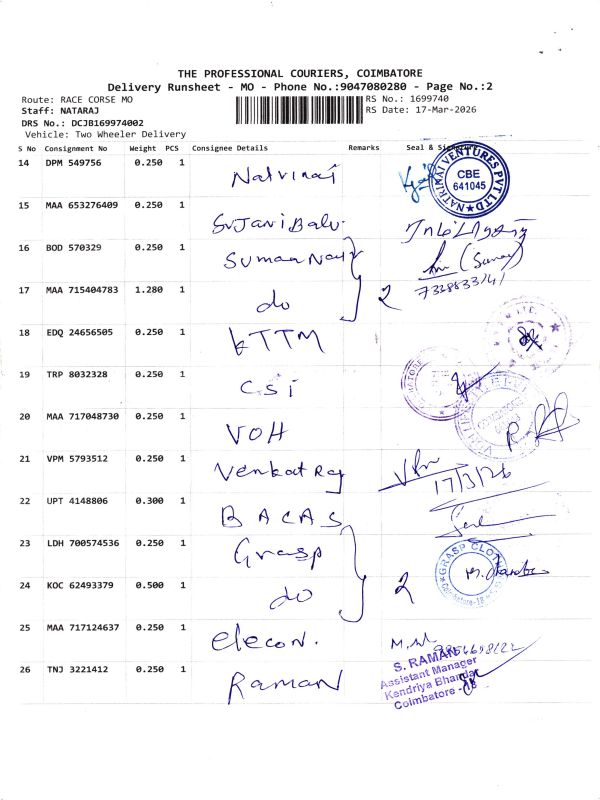 THE PROFESSIONAL COURIERS, COIMBATORE
Delivery Runsheet - MO - Phone No.:9047080280 - Page No.:2
Route: RACE CORSE MO
RS No.: 1699740
Staff: NATARAJ
RS Date: 17-Mar-2026
DRS No.: DCJB169974002
Vehicle: Two Wheeler Delivery
S No Consignment No Weight PCS Consignee Details Remarks Seal &
14 DPM 549756 0.250 1
NATRIMAI VENTURES PVT LTD
CBE
641045
15 MAA 653276409 0.250 1
16 BOD 570329 0.250 1
17 MAA 715404783 1.280 1 do 2
18 EDQ 24656505 0.250 1 KTTM
19 TRP 8032328 0.250 1 CSi
20 MAA 717048730 0.250 1 VOH
21 VPM 5793512 0.250 1 Venkat Raj
17/3/26
22 UPT 4148806 0.300 1 BACAS
23 LDH 700574536 0.250 1 Grasp
24 KOC 62493379 0.500 1 do 2
GRASP CLOTH
25 MAA 717124637 0.250 1 elecon.
26 TNJ 3221412 0.250 1 Raman
S. RAMAN
Assistant Manager
Kendriya Bhandar
Coimbatore - 18